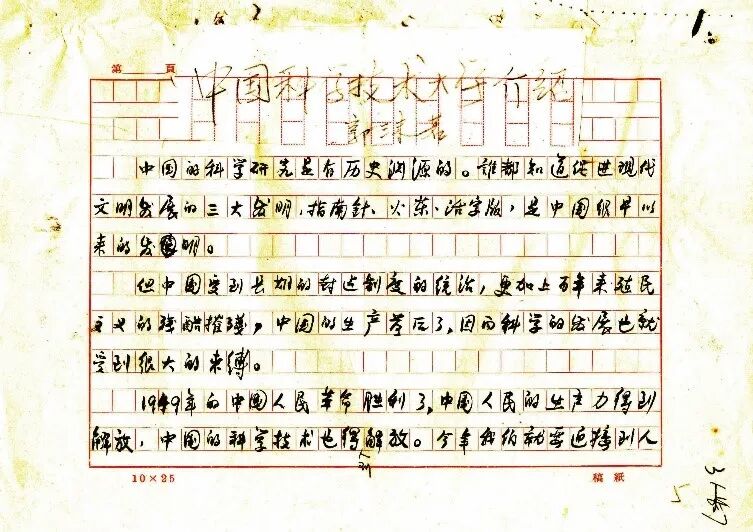 1.
第 頁
中国科学技术大学介绍
郭沫若
中国的科学研究是有历史渊源的。誰都知道促进现代
文明发展的三大发明，指南针、火药、活字版，是中国很早以
来的发明。
但中国受到长期的封建制度的统治，更加上百年来殖民
主义的残酷摧残，中国的生产落后了，因而科学的发展也就
受到很大的束缚。
1949年的中国人民革命胜利了，中国人民的生产力得到
解放，中国的科学技术也得到解放。今年我们就要迎接到人
10×25 稿紙
5